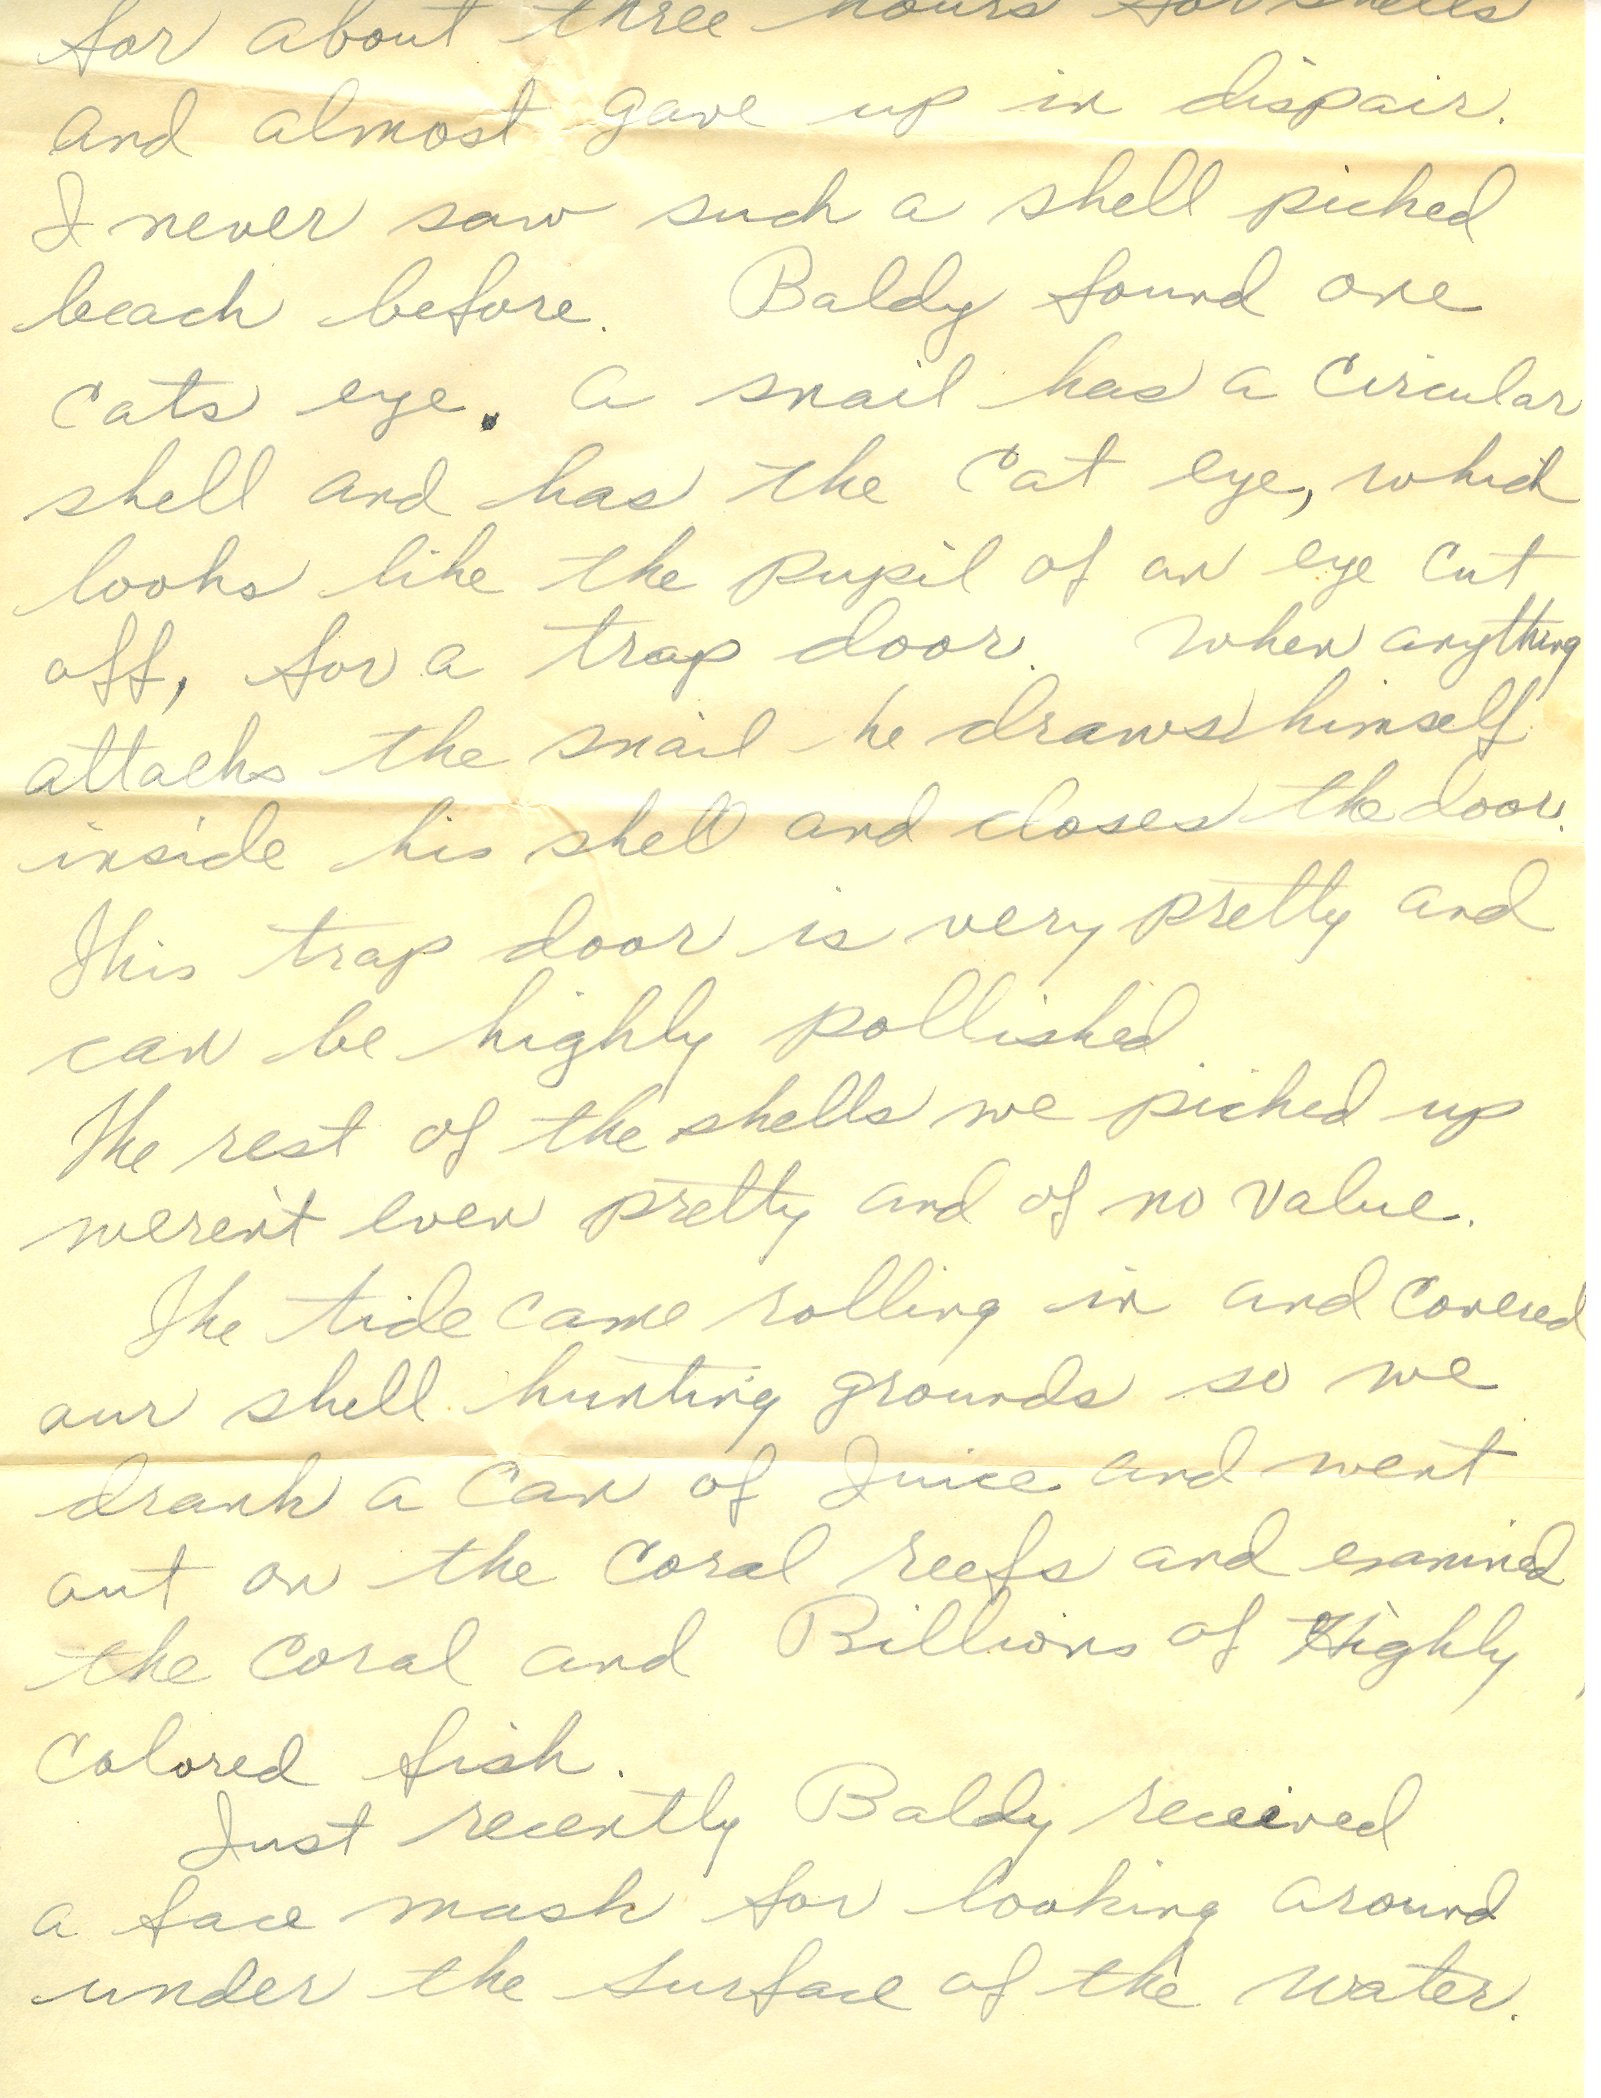 for about three hours for shells
and almost gave up in dispair.
I never saw such a shell picked
beach before. Baldy found one
cats eye. A snail has a circular
shell and has the cat eye, which
looks like the pupil of an eye cut
off, for a trap door. When anything
attacks the snail he draws himself
inside his shell and closes the door.
This trap door is very pretty and
can be highly pollished.
The rest of the shells we picked up
weren't even pretty and of no value.
The tide came rolling in and covered
our shell hunting grounds so we
drank a can of Juice and went
out on the coral reefs and examined
the coral and Billions of Highly
colored fish.
Just recently Baldy received
a face mask for looking around
under the surface of the water.